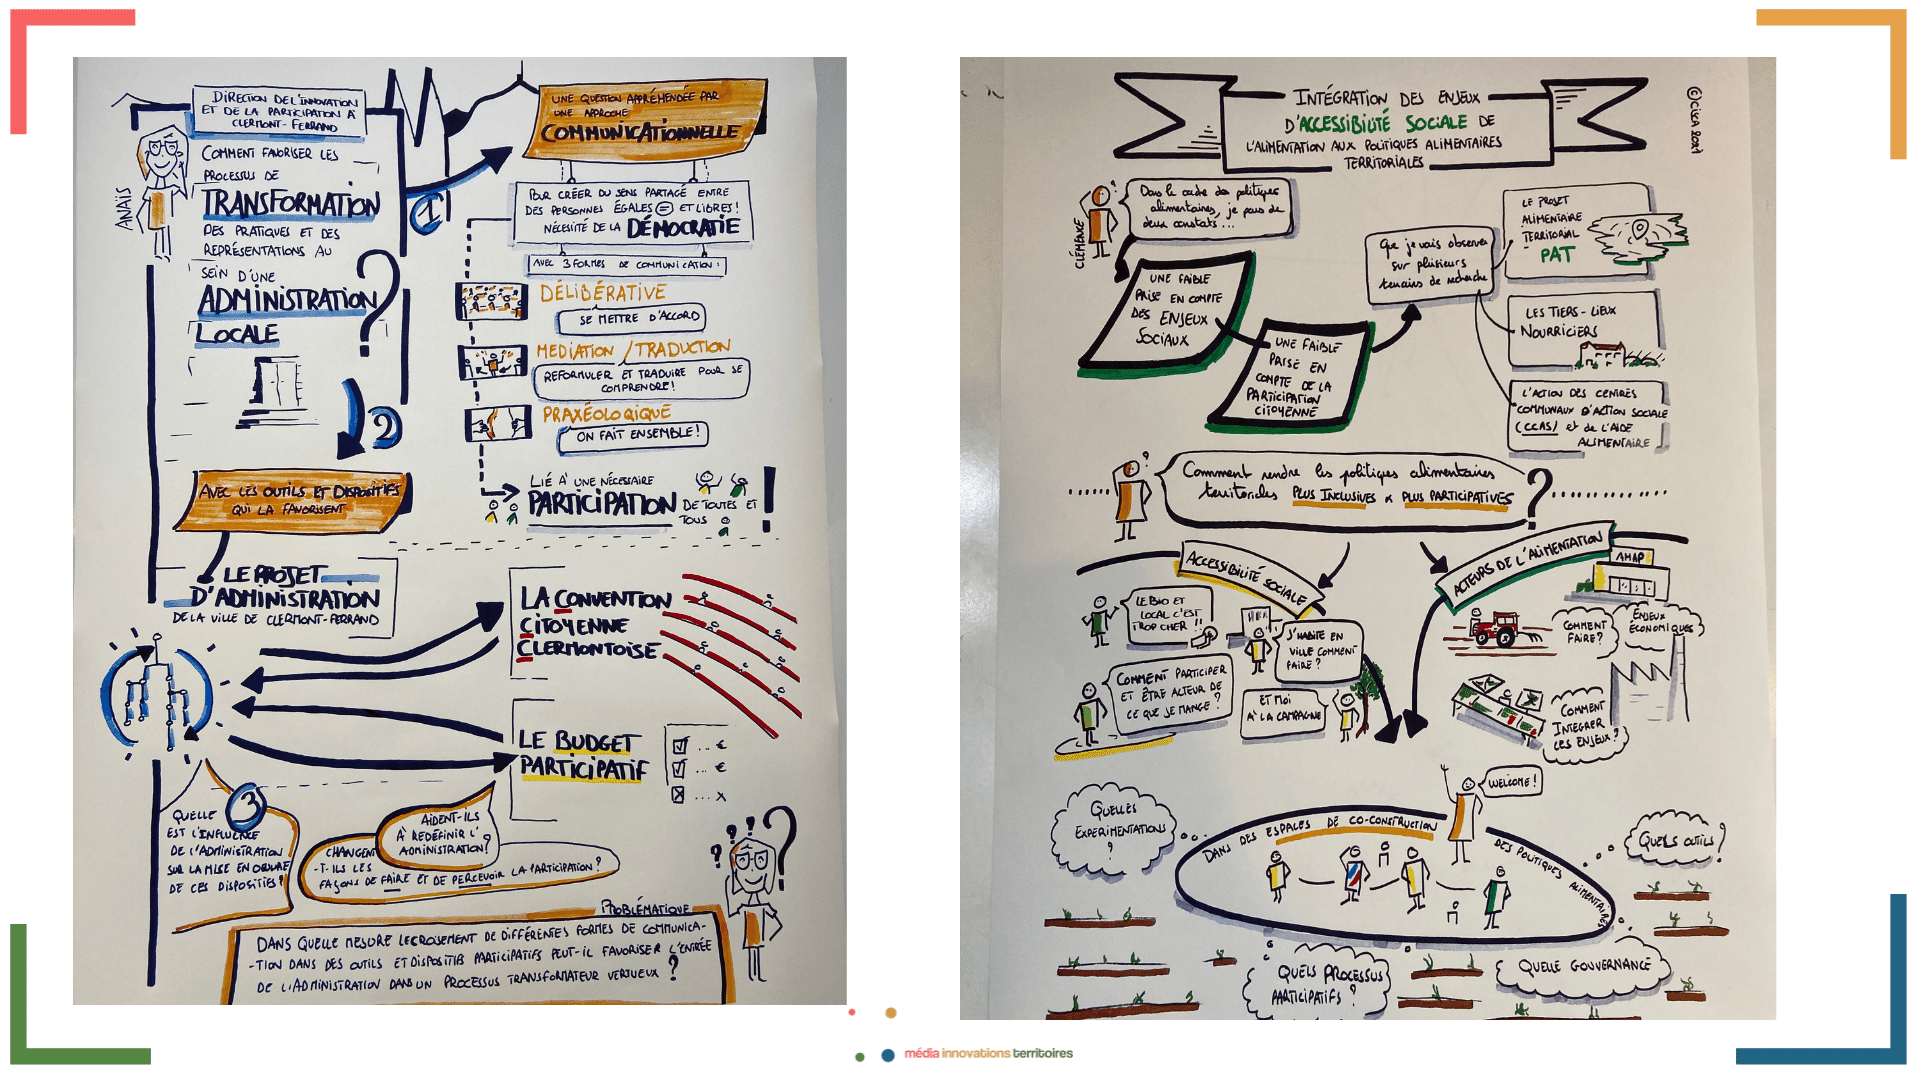 DIRECTION DE L'INNOVATION
ET DE LA PARTICIPATION À
CLERMONT-FERRAND
ANAÏS
COMMENT FAVORISER LES
PROCESSUS DE
TRANSFORMATION
DES PRATIQUES ET DES
REPRÉSENTATIONS AU
SEIN D'UNE
ADMINISTRATION
LOCALE
?
1
2
UNE QUESTION APPRÉHENDÉE PAR
UNE APPROCHE
COMMUNICATIONNELLE
POUR CRÉER DU SENS PARTAGÉ ENTRE
DES PERSONNES ÉGALES = ET LIBRES !
NÉCESSITÉ DE LA DÉMOCRATIE
AVEC 3 FORMES DE COMMUNICATION :
DÉLIBÉRATIVE
SE METTRE D'ACCORD
MEDIATION / TRADUCTION
REFORMULER ET TRADUIRE POUR SE
COMPRENDRE !
PRAXÉOLOGIQUE
ON FAIT ENSEMBLE !
LIÉ À UNE NÉCESSAIRE
PARTICIPATION DE TOUTES ET
TOUS !
AVEC LES OUTILS ET DISPOSITIFS
QUI LA FAVORISENT
LE PROJET
D'ADMINISTRATION
DE LA VILLE DE CLERMONT-FERRAND
LA CONVENTION
CITOYENNE
CLERMONTOISE
LE BUDGET
PARTICIPATIF
... €
... €
... X
3
QUELLE
EST L'INFLUENCE
DE L'ADMINISTRATION
SUR LA MISE EN OEUVRE
DE CES DISPOSITIFS ?
AIDENT-ILS
À REDÉFINIR L'
ADMINISTRATION ?
CHANGENT
-T-ILS LES
FAÇONS DE FAIRE ET DE PERCEVOIR LA PARTICIPATION ?
? ? ? ?
PROBLÉMATIQUE
DANS QUELLE MESURE LE CROISEMENT DE DIFFÉRENTES FORMES DE COMMUNICA-
-TION DANS DES OUTILS ET DISPOSITIFS PARTICIPATIFS PEUT-IL FAVORISER L'ENTRÉE
DE L'ADMINISTRATION DANS UN PROCESSUS TRANSFORMATEUR VERTUEUX ?
INTÉGRATION DES ENJEUX
D'ACCESSIBILITÉ SOCIALE DE
L'ALIMENTATION AUX POLITIQUES ALIMENTAIRES
TERRITORIALES
2021
CLÉMENCE
Dans le cadre des politiques
alimentaires, je pars de
deux constats...
UNE FAIBLE
PRISE EN COMPTE
DES ENJEUX
SOCIAUX
UNE FAIBLE
PRISE EN
COMPTE DE LA
PARTICIPATION
CITOYENNE
Que je vais observer
sur plusieurs
terrains de recherche
LE PROJET
ALIMENTAIRE
TERRITORIAL
PAT
LES TIERS-LIEUX
NOURRICIERS
L'ACTION DES CENTRES
COMMUNAUX D'ACTION SOCIALE
(CCAS) et DE L'AIDE
ALIMENTAIRE
Comment rendre les politiques alimentaires
territoriales PLUS INCLUSIVES & PLUS PARTICIPATIVES ?
ACCESSIBILITÉ SOCIALE
ACTEURS DE L'ALIMENTATION
AMAP
LE BIO ET
LOCAL C'EST
TROP CHER !!
J'HABITE EN
VILLE COMMENT
FAIRE ?
COMMENT PARTICIPER
ET ÊTRE ACTEUR DE
CE QUE JE MANGE ?
ET MOI
À LA CAMPAGNE
COMMENT
FAIRE ?
ENJEUX
ÉCONOMIQUES
COMMENT
INTÉGRER
CES ENJEUX ?
WELCOME !
QUELLES
EXPERIMENTATIONS
?
DANS DES ESPACES DE CO-CONSTRUCTION
DES POLITIQUES ALIMENTAIRES
QUELS OUTILS ?
QUELS PROCESSUS
PARTICIPATIFS ?
QUELLE GOUVERNANCE
média innovations territoires